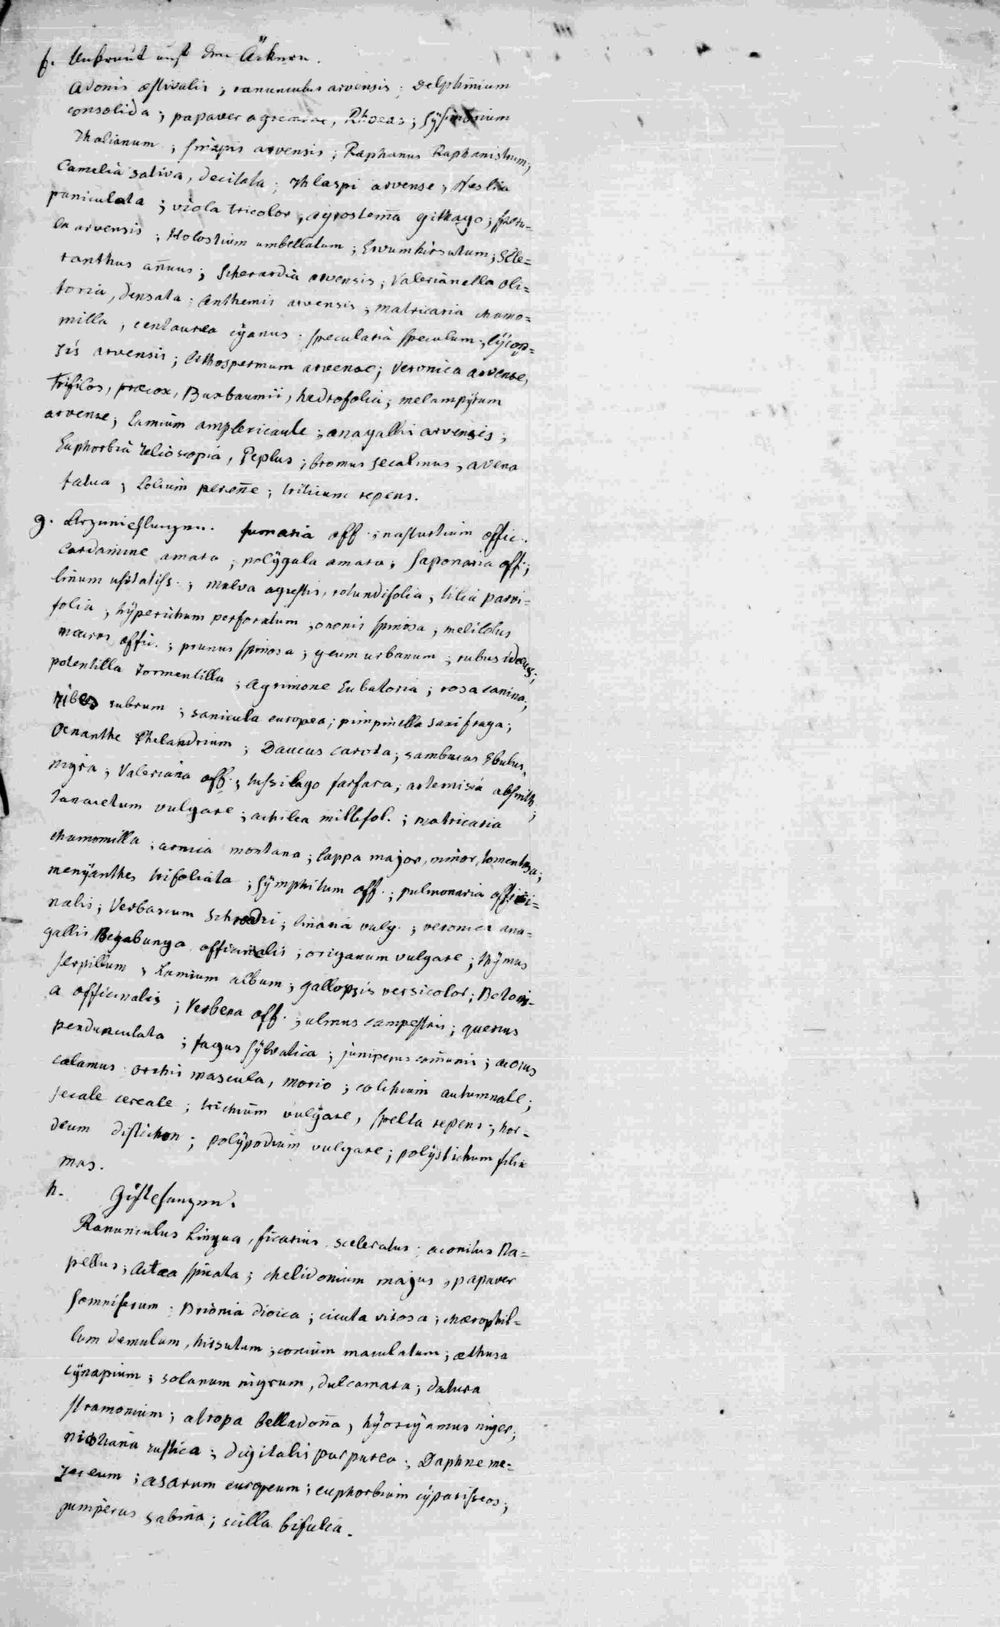 f. Unkraut auf den Äckern.
Adonis æstivalis; ranunculus arvensis; Delphinium
consolida; papaver agremone, Rhoeas; Sysimbrium
Thalianum; sinapis arvensis; Raphanus Raphanistrum;
Camelia sativa, decitata; Thlaspi arvense; Neslia
paniculata; viola tricolor; agrostem̄a githago; speru-
la arvensis; Holostium umbellatum; Ervum hirsutum; Scle-
ranthus an̄uus; Scherardia arvensis; Valerianella oli-
toria, densata; Anthemis arvensis; matricaria chamo-
milla; centaurea cÿanus; specularia speculum; lÿcop-
sis arvensis; lithospermum arvense; Veronica arvense,
trifilos, præcox, Buxbaumii, hedrofolia; melampÿrum
arvense; Lamium amplexicaule; anagallis arvensis;
Euphorbia helioscopia, Peplus; bromus secalinus; avena
fatua; Lolium peren̄e; triticum repens.
g. Arzneipflanzen. fumaria off.; nasturtium offic.
Cardamine amara; polÿgala amara; Saponaria off;
linum usitatiss.; malva agrestis, rotundifolia; tilia parvi-
folia; hÿpericum perforatum; ononis spinosa; melilotus
offic.; prunus spinosa; geum urbanum; rubus idæus;
potentilla Tormentilla; Agrimone Eubatoria; rosa canina;
ribes rubrum; sanicula europea; pimpinella saxifraga;
Oenanthe Phelandrium; Daucus carota; sambucus Ebulus,
nigra; Valeriana off.; tussilago farfara; artemisia absinth;
Tanacetum vulgare; achilea millefol.; matricaria
chamomilla; arnica montana; lappa major, minor, tomentosa;
menÿanthes trifoliata; sÿmphitum off.; pulmonaria offici-
nalis; Verbascum Schradri; linaria vulg.; veronica ana-
gallis Begabunga officinalis; origanum vulgare; thÿmus
serpillum; Lamium album; gallopsis versicolor; Betoni-
a officinalis; Verbena off.; ulmus campestris; quercus
pendunculata; fagus sÿlvatica; juniperus com̄unis; acorus
calamus orchis mascula, morio; colchicum autumnale;
secale cereale; triticum vulgare, spelta repens; hor-
deum distichon; polÿpodium vulgare; polÿstichum filix
mas.
h. Giftpflanzen.
Ranunculus Lingua, ficarius, sceleratus; aconitus Na-
pellus; Actæa spicata; chelidonium majus; papaver
somniferum; Brionia dioica; cicuta virosa; chærophil-
lum demulum, hirsutum; conium maculatum; æthusa
cÿnapium; solanum nigrum, dulcamara; datura
stramonium; atropa belladon̄a; hÿoscÿamus niger;
nicotiana rustica; digitalis purpurea; Daphne me-
zereum; asarum europeum; euphorbium cÿparissios;
juniperus sabina; scilla bifulia.